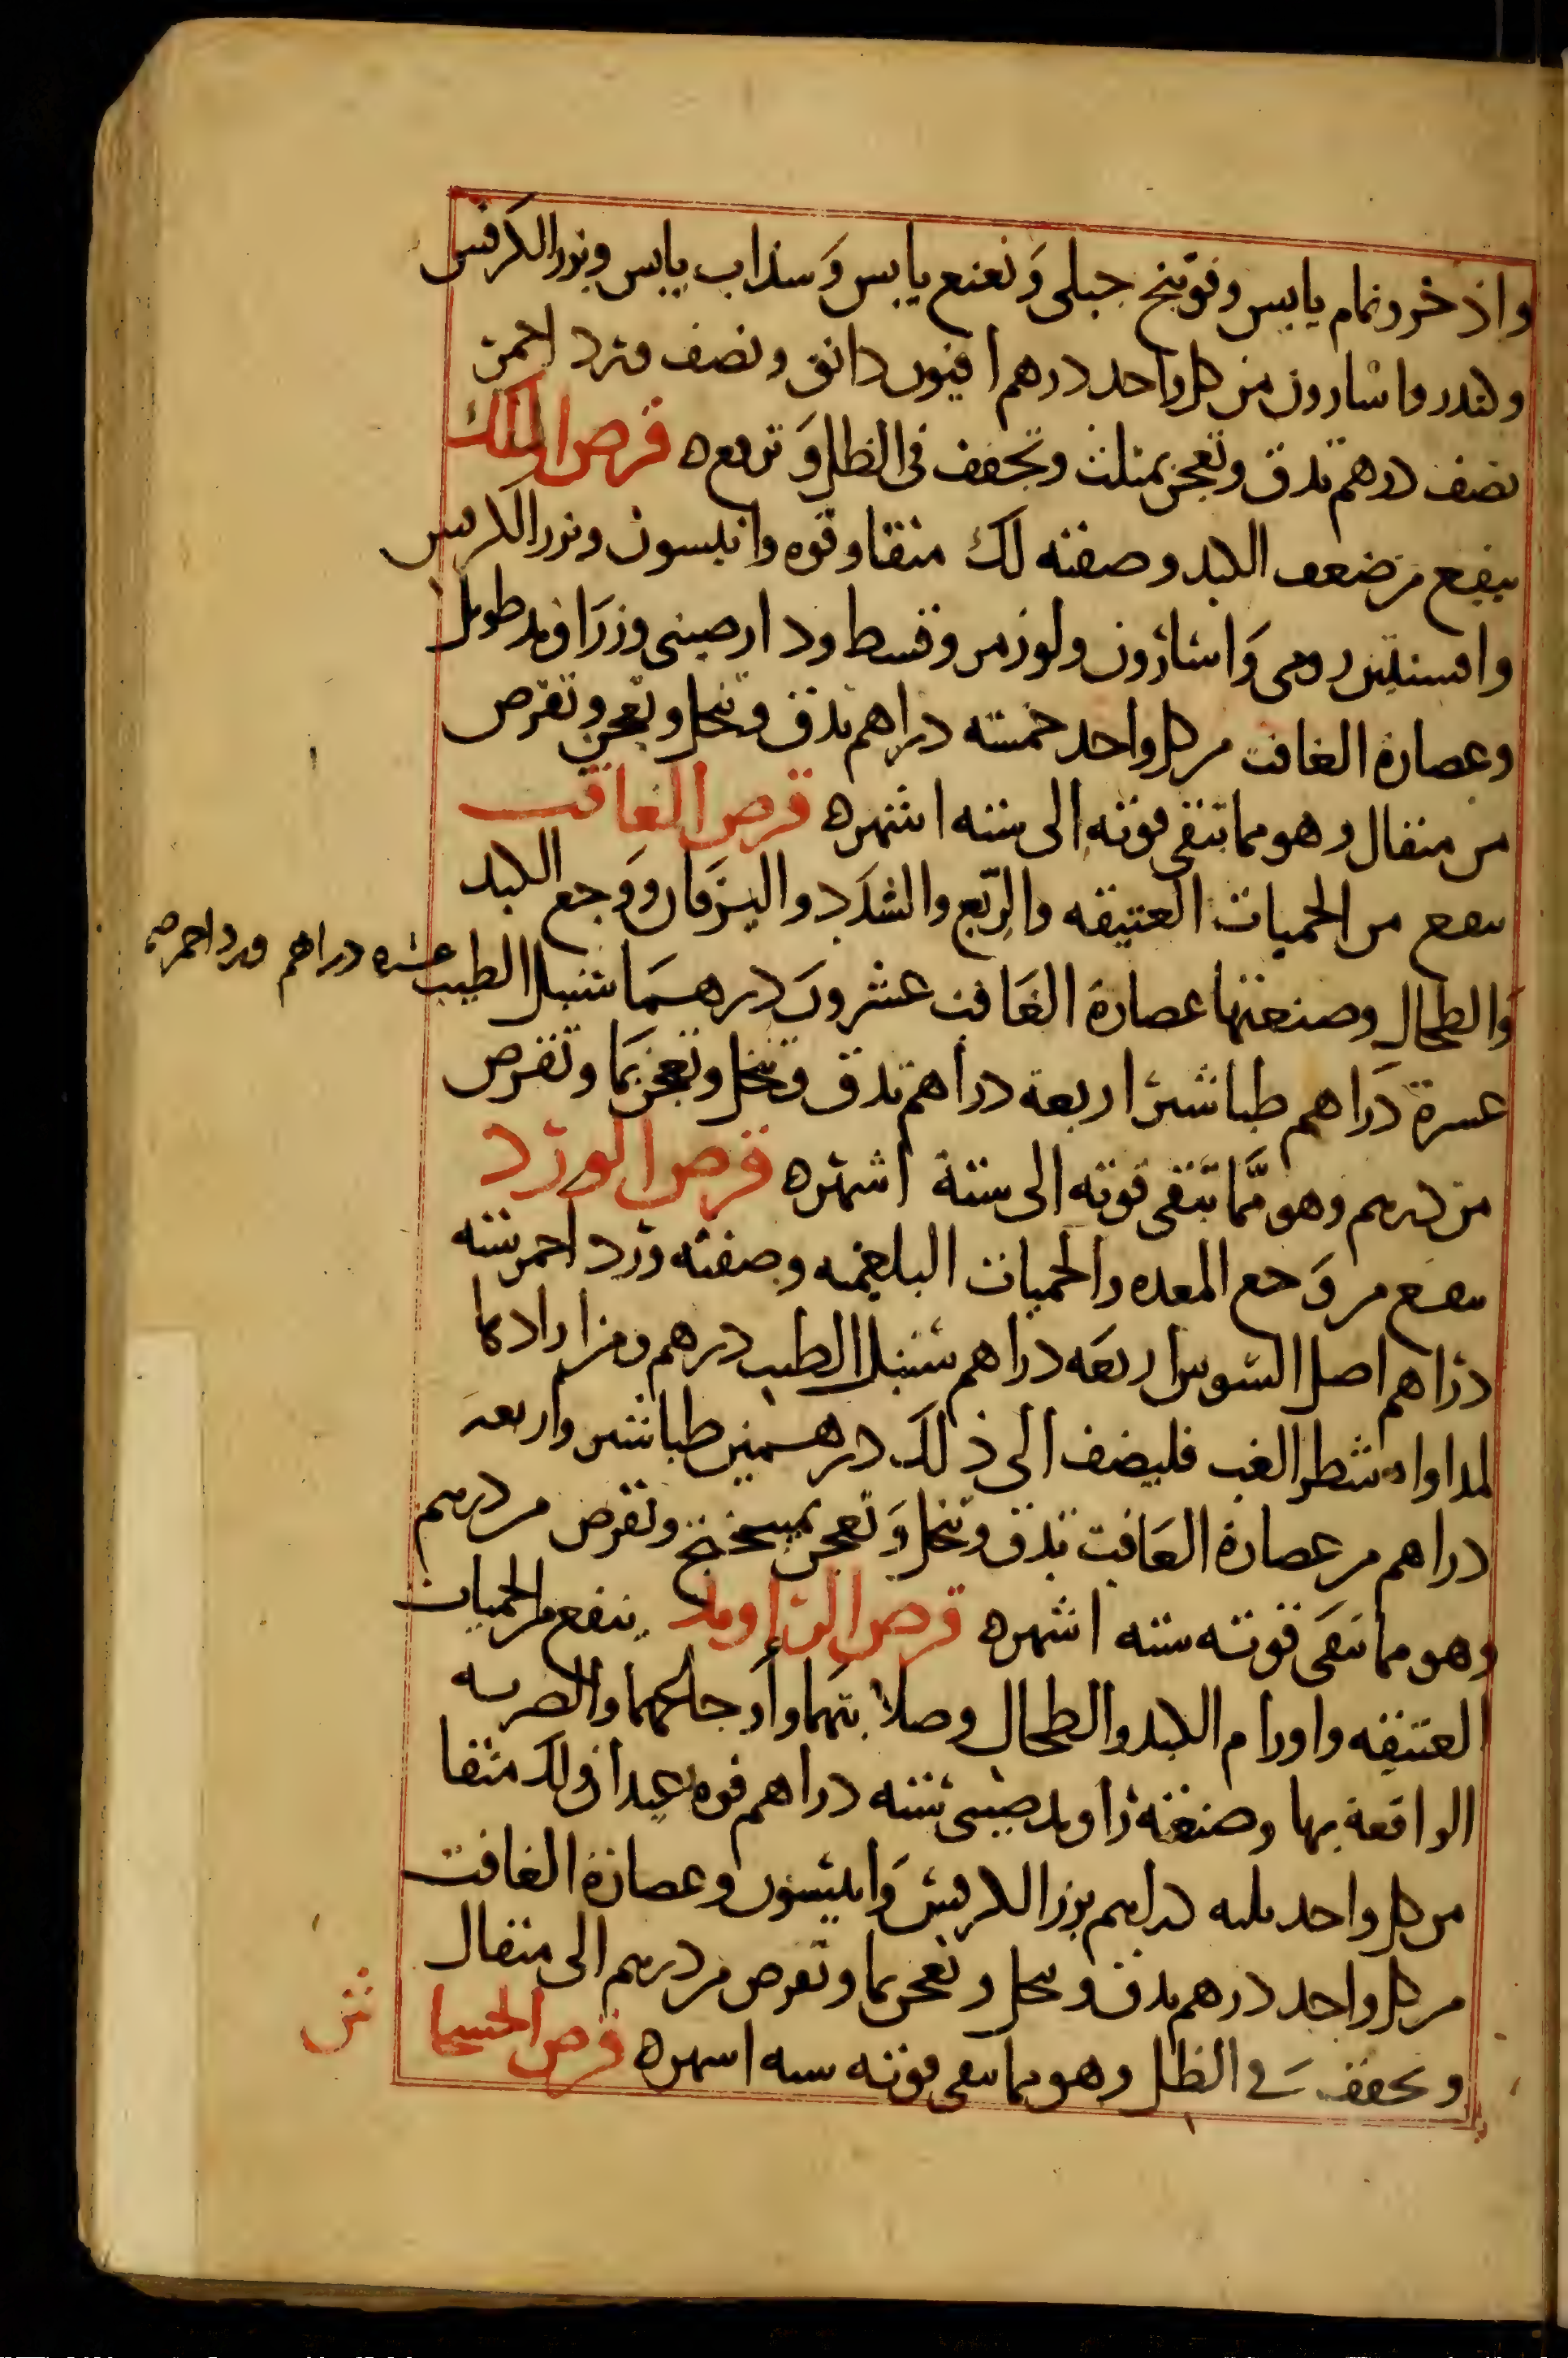 واذخر ونمام يابس وفوتنج جبلى وَنعنع يابس وَسذاب يابس وبزر الكرفس
وكندر واسارون من كل واحد درهم افيون دانق ونصف وَرد احمر
نصف درهم تدق وتعجن بمثلث وتجفف فى الظل وَترفع ه قرص اللك
ينفع من ضعف الكبد وصفته لك منقا وفوه وانيسون وبزر الكرفس
وافسنتين رومى وَاسارون ولوز مر وقسط ودارصينى وزرَاوند طويل
وعصارة الغافت من كل واحد خمسة دراهم تدق وتنخل وتعجن وتقرص
من مثقال وهو مما تبقى قوته الى ستة اشهر ه قرص الغافت
ينفع من الحميات العتيقه والربع والسُدَد واليرقان ووجع الكبد
وَالطحال وصنعتها عصارة الغَافت عشرون درهما سنبل الطيب
عشره دراهم ورد احمر صح
عشرة دَراهم طباشير اربعة دراهم تدق وتنخل وتعجن بمَا وتقرص
من درهم وهو مّما تبقى قوته الى ستة اشهر ه قرص الورد
ينفع من وَجع المعده والحميات البلغميه وصفته ورد احمر ستة
دراهم اصل السوس اربعَه دراهم سنبل الطيب درهم ومن اراد كما
لمداواة شطر الغب فليضف الى ذلك درهمين طباشير واربعة
دراهم من عصارة الغَافت تدق وتنخل وَتعجن بميبختج وتقرص من درهم
وهو مما تبقَى قوته ستة اشهر ه قرص الراوند ينفع من الحميات
العتيقه واورام الكبد والطحال وصلابتهما وأوجاعهما والضربه
الواقعة بها وصنعته راوند صينى ستة دراهم فوه عيدان ولك منقا
من كل واحد ثلثه دراهم بزر الكرفس وَانيسون وعصارة الغافت
من كل واحد درهم تدق وتنخل وتعجن بما وتقرص من درهم الى مثقال
وتجفف فى الظل وهو مما تبقى قوته ستة اشهر ه قرص الخشخا
ش